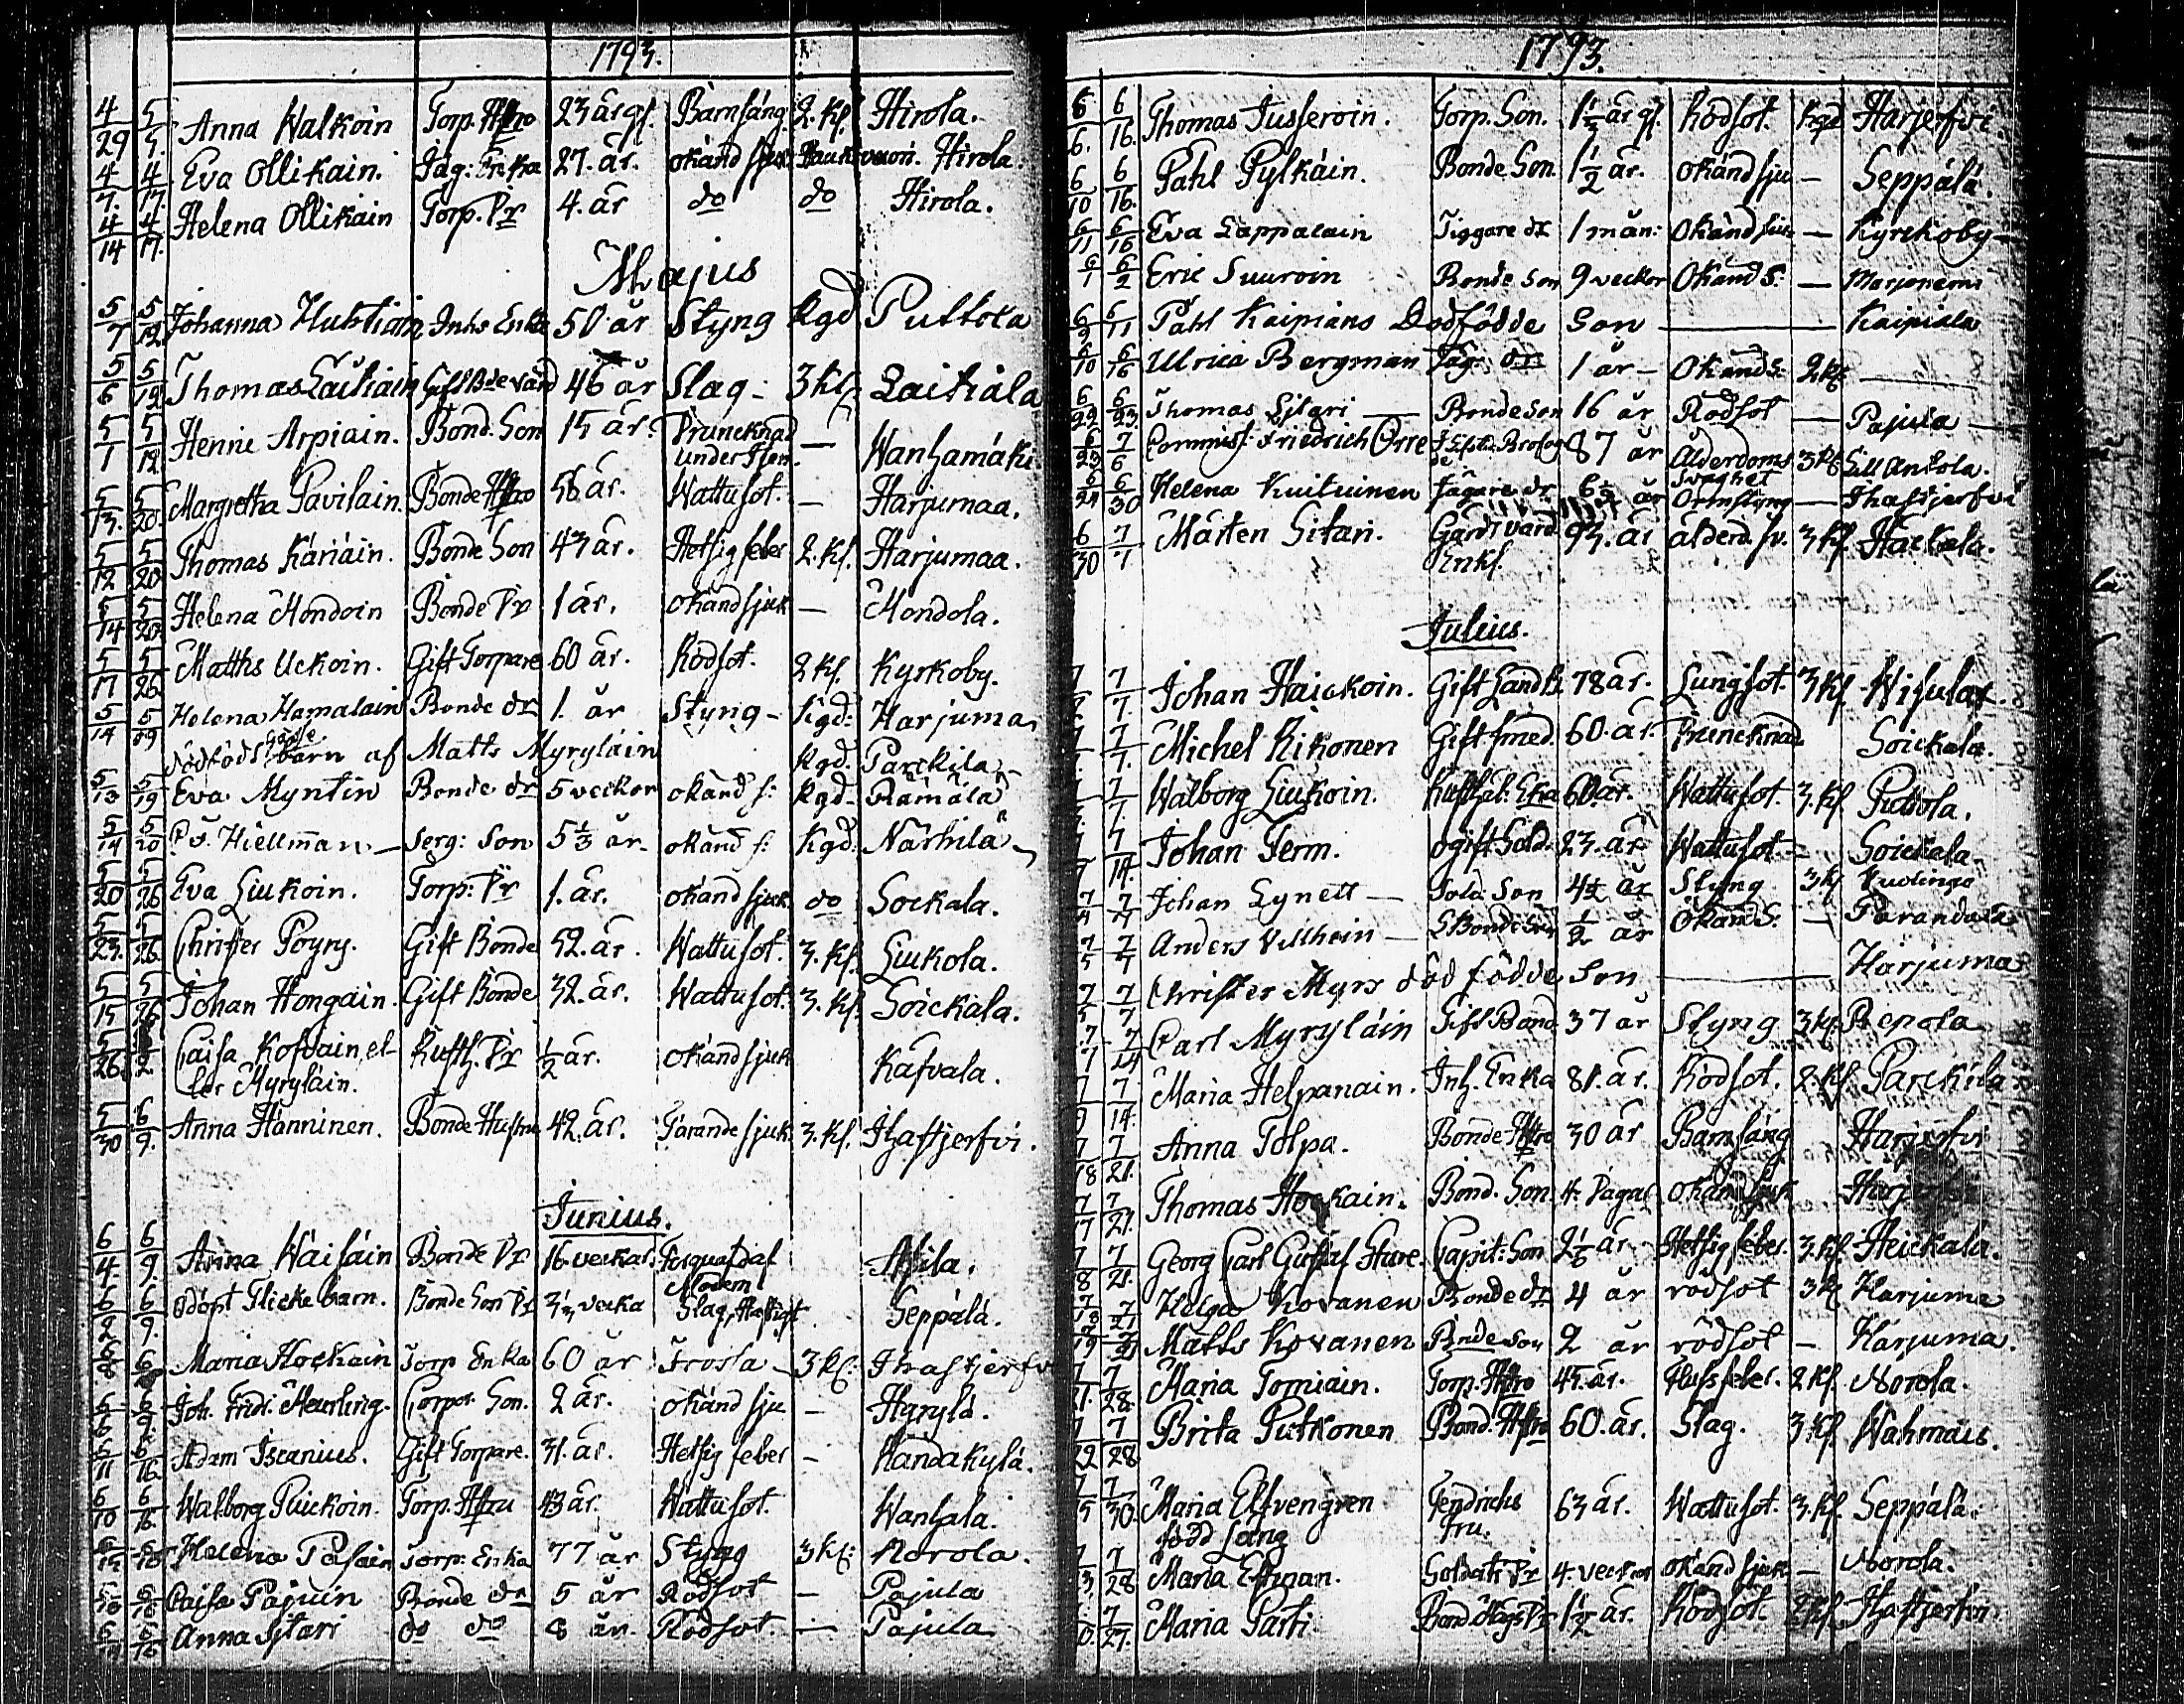 1793.
4/29 5/5. Anna Walkoin Torp. Hstro 23 år gl. Barnsäng. 2. Kl. Hirola.
4/7. 4/17. Eva Ollikain. Jäg: Enka 27. år. okänd sjuk Hirola.
4/14 4/17. Helena Ollikain Torp. Dr 4. år do do Hirola.
Majus
5/7 5/12 Johanna Huhtiain Inhs Enka 50 år Styng Kgd Puttola
5/6 5/19 Thomas Laitiain Gift Bde 46 år Slag - 3 Kl: Laitiala
5/1 5/12 Henric Arpiain. Bond. Son 15 år. Druncknad — Wanhamäki
under Isen.
5/13. 5/20. Margretha Pavilain. Bonde Hstro 56 år. Wattusot. — Harjumaa.
5/12 5/20 Thomas Käriäin. Bonde Son 43 år. Hetsig feber 2. Kl. Harjumaa.
5/14 5/20. Helena Mondoin Bonde Dr 1 år. okänd sjuk — Mondola.
5/17 5/26. Matths Uckoin. Gift Torpare 60 år. Rödsot. 2 Kl. Kyrkoby.
5/14 5/19 Helena Hamalain Bonde dr 1. år Styng - Kgd: Harjuma
gosse
dödfödt barn af Matts Myryläin Kgd. Parckila
5/13 5/19 Eva Myntin Bonde dr 5 veckor okänd s: Kgd. Rämälä
5/14 5/20 Hiellman — Serg: Son 5 1/3 år okänd s: Kgd: Närhilä
5/20 5/26 Eva Liukoin. Torp: Dr 1. år. okänd sjuk. do Sockala.
5/23. 5/26. Christer Poyry. Gift Bonde 52. år. Wattusot. 3. Kl. Liukola.
5/15 5/26 Johan Hongain. Gift Bonde 32. år. Wattusot. 3. Kl. Soickala.
5/26. Caisa Kofvain, el- Rusth. Dr 1/2 år. okänd sjuk Käfvala.
ler Myryläin.
5/30 6/9. Anna Hänninen. Bonde Hustru 42. år. Tärande sjuk. 3. Kl. Ihastjerfvi.
Junius.
6/4. 6/9. Anna Waisäin Bonde Dr 16. veckor. Förquafd af Asila.
Modern
6/2 6/9. Odöpt Flicke barn. Bonde Son Dr 3 1/2 vecka Slag, Hastigt Seppälä.
6/8 Maria Hockain Torp Enka 60 år Frossa — 3 Kl: Ihastjerfvi
6/6 6/9. Joh. Fridr. Meurling. Corpor. Son. 2 år. okänd sju — Haryla.
6/11 6/16. Adam Iscanius. Gift Torpare. 31. år. Hetsig feber — Kandakylä.
6/10 6/16. Walborg Puickoin. Torp. Hstru 43 år. Wattusot. Wanhala.
Helena Pasain Torp: Enka 77 år Styng 3 Kl: Norola.
Caisa Pajuin Bonde dr 5 år Rödsot — Pajula
Anna Sjtari do do 8 år. Rödsot. — Pajula
1793.
6/6. 6/16. Thomas Jusseroin. Torp. Son. 1 1/2 år gl. Rödsot. Kgd Harjerfvi.
6/10 6/16. Pahl Pylkäin. Bonde Son. 1 1/2 år. okänd sju — Seppälä.
6/11 6/16 Eva Lappalain Tiggare dr 1 mån: Okänd sju — Kyrckoby —
6/1 6/2 Eric Suuroin Bonde Son 9 veckor Okänd S: — Marjoniemi
6/11 Pahl Kaipians Dödfödde Son — Kaipiala
6/10 6/16 Ulrica Bergman Jäg: dr 1 år — Okänd S: 2 Kl —
6/22 6/23. Thomas Sjtari — Bonde Son 16 år Rödsot — Pajula —
6/23 7/6 Commiss: Friedrich Orre 87 år Ålderdoms 3 Kl
svaghet
6/24 6/30 Helena Kuituinen Jägare dr 6 1/2 år Ormstyng — Ihastjerfvi
6/30 7/1 Mårten Sitari. Gårdsvärd 93. år ålderd. sv. 3 Kl. Hackala.
Enkl.
Julius.
7/7. Johan Haickoin. Gift Land B. 78 år. Lungsot. 3 Kl. Wisulax.
7/7. Michel Kikonen Gift smed. 60. år. Druncknad. Soickala.
7/7. Walborg Liukoin. Rusthål: Eka 60 år. Wattusot. 3. Kl. Puttola.
7/7 7/14. Johan Term. ogift Sold. 23. år Wattusot. — Soickala.
Johan Lynett — Sold: Son 4 1/2 år Styng 3 Kl Vuolingo
7/5 7/7 Anders Villhein — Bonde Son 1/2 år Okänd S: — Parandala
7/5 7/7 Christer Myrs död födde Son — Harjuma
7/7 7/14 Carl Myryläin Gift Bond 37 år Styng 3 Kl. Repola
7/9 7/14. Maria Helpanain. Inh. Enka 81. år. Rödsot. 2. Kl. Parckila
7/18 7/21. Anna Tolpa. Bonde Hstro 30 år Barnsäng Harjerfvi
7/17 7/21. Thomas Hockain. Bond. Son 4. Dagar okänd sjuk
7/8 7/21. Georg Carl Gustaf Sture. Capit: Son 2 1/6 år. Hetsig feber. 3. Kl. Heickala.
Helga Kovanen Bonde dr 4 år rödsot 3 Kl Harjuma
7/19 7/21 Matts Kovanen Bonde Son 2 år rödsot — Harjuma.
7/21. 7/28. Maria Tomiain. Torp. Hstro 45. år. Fluss feber. 2 Kl. Norola.
7/22 7/28 Brita Putkonen Bond. Hstro 60. år. Slag. 3. Kl. Wahmais.
7/5 7/30. Maria Elfvengren Fendrichs 63 år. Wattusot. 3. Kl. Seppälä.
född Lang Fru.
7/3. 7/28 Maria Eftman. Soldats Dr 4. veckor okänd sjuk — Norola.
7/27. Maria Parti. 1 1/2 år. Rödsot. 2 Kl. Ihastjerfvi.